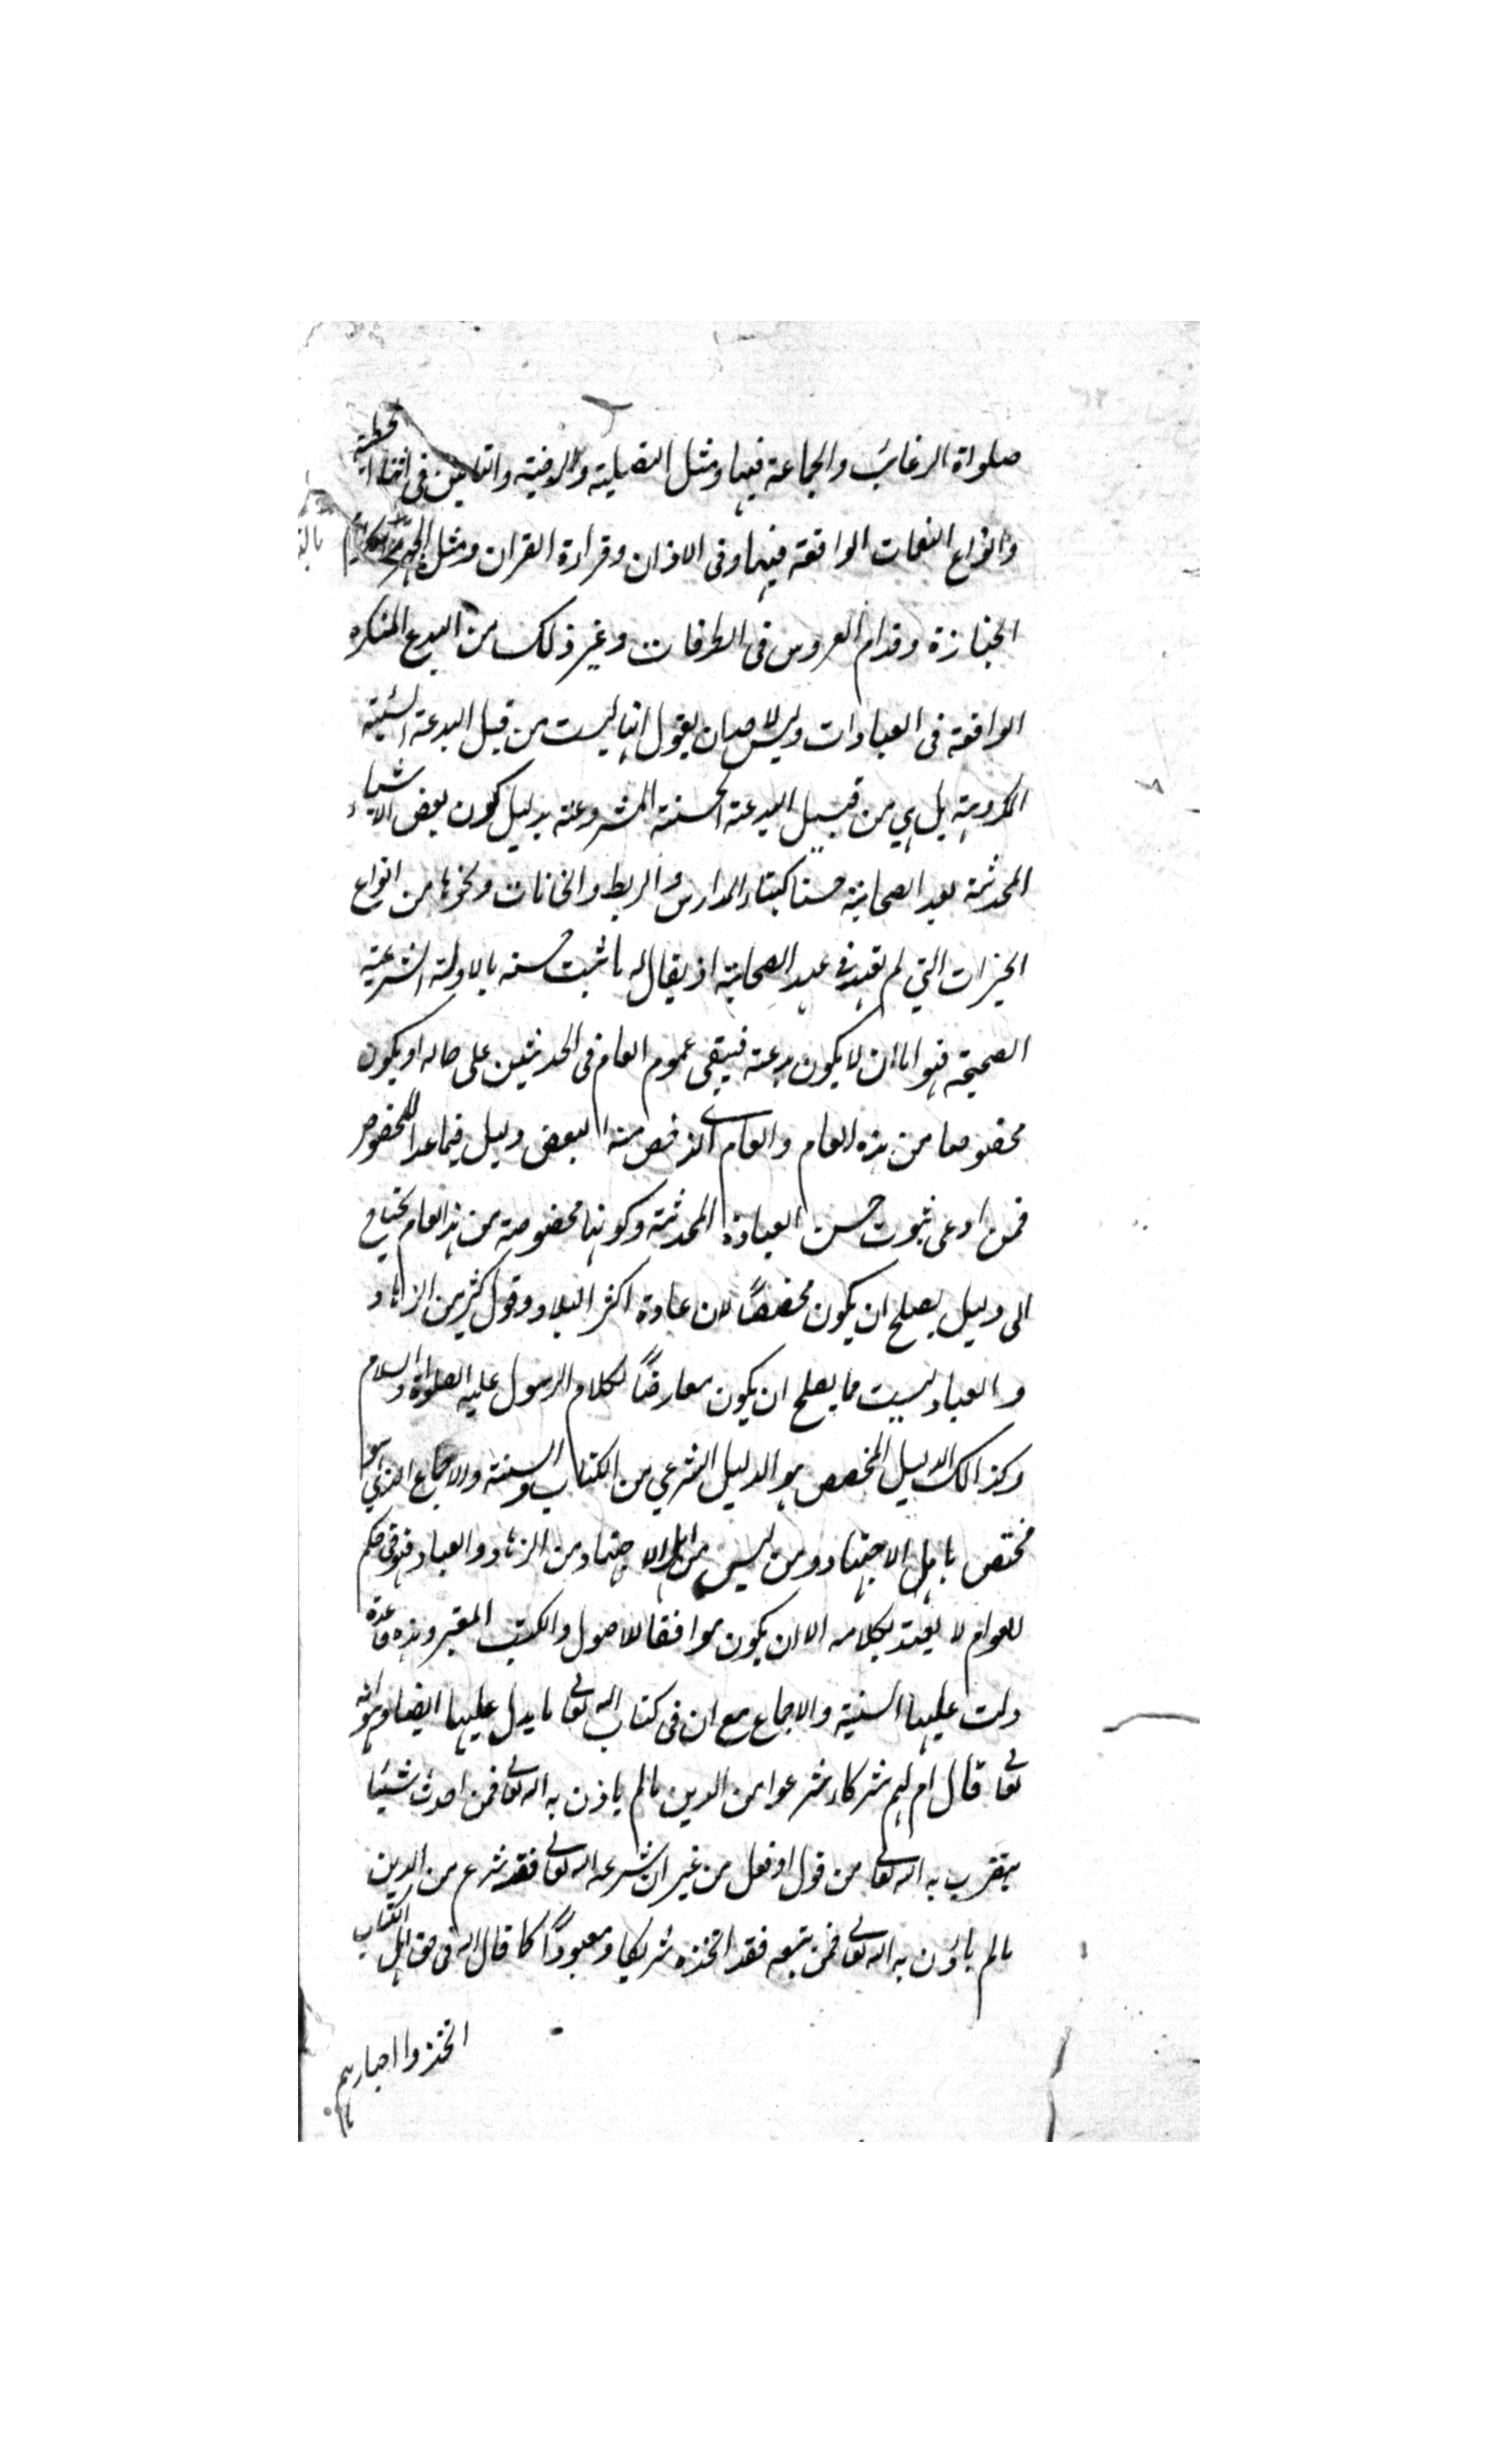 صلواة الرغائب والجماعة فيها ومثل التصلية والترضية والتامين في اثناء الخطبة
وانواع النغمات الواقعة فيها وفى الاذان وقراءة القران ومثل الجهر
الجنازة وقدام العروس فى الطرقات وغير ذلك من البدع المنكره
الواقعة فى العبادات وليس لاحد ان يقول انها ليست من قبيل البدعة السئية
المكروهة بل هي من قبيل البدعة الحسنة المشروعة بدليل كون بعض الاشياء
المحدثة بعد الصحابة حسنا كبناء المدارس والربط والخانات ونحوها من انواع
الخيرات التي لم تعهد في عهد الصحابة اذ يقال له ما ثبت حسنه بالادلة الشرعية
الصحيحة فهو اما ان لا يكون بدعة فيبقى عموم العام فى الحديثين على حاله او يكون
مخصوصا من هذه العام والعام الذى خص منه البعض دليل فيما عدا المخصوص
فمن ادعى ثبوت حسن العبادة المحدثة وكونها مخصوصة من هذ العام يحتاج
الى دليل يصلح ان يكون مخصصًا لان عادة اكثر البلاد وقول كثير من الزهاد
و العباد ليست مما يصلح ان يكون معارضًا لكلام الرسول عليه الصلواة والسلام
وكذالك الدليل المخصص هو الدليل الشرعي من الكتاب والسنة والاجماع الذي هو
مختص باهل الاجتهاد ومن ليس من اهل الاجتهاد من الزهاد والعباد فهو فى حكم
العوام لا يعتد بكلامه الا ان يكون موافقا للاصول والكتب المعتبر وهذه قاعدة
دلت عليها السنية والاجماع مع ان فى كتاب اله تعالى ما يدل عليها ايضا وهو انه
تعالى قال ام لهم شركاء شرعوا من الدين مالم ياذن به اله تعالى فمن احدث شيئا
يتقرب به اله تعالى من قول او فعل من غير ان شرعه اله تعالى فقد شرع من الدين
مالم ياذن به اله تعالى فمن تبعه فقد اتخذه شريكا ومعبودًا كما قال اله فى حق اهل الكتاب
اتخذوا احبارهم